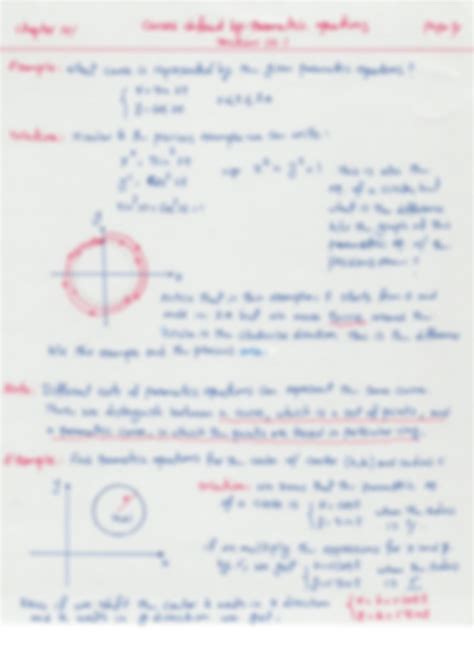 Chapter 10 Curves defined by parametric equations Page 3
Section 10.1
Example: what curve is represented by the given parametric equations?
x = sin 2t
y = cos 2t 0 ≤ t ≤ 2π
Solution: similar to the previous example we can write:
x² = sin² 2t
y² = cos² 2t ⇒ x² + y² = 1 this is also the
sin² 2t + cos² 2t = 1 eq. of a circle, but
what is the difference
b/w the graph of this
parametric eq. w/ the
previous one?
y
x
Notice that in this example, t starts from 0 and
ends in 2π but we move twice around the
circle in the clockwise direction. This is the difference
b/w this example and the previous one.
Note: Different sets of parametric equations can represent the same curve.
Thus we distinguish between a curve, which is a set of points, and
a parametric curve, in which the points are traced in particular way.
Example: Find parametric equations for the circle of center (h,k) and radius r
y
x
Solution: we know that the parametric eq.
of a circle is x = cos t when the radius
y = sin t is 1.
if we multiply the expressions for x and y
by r, we get x = r cos t when the radius
y = r sin t is r.
Now if we shift the center h units in x direction x = h + r cos t
and k units in y direction we get: y = k + r sin t